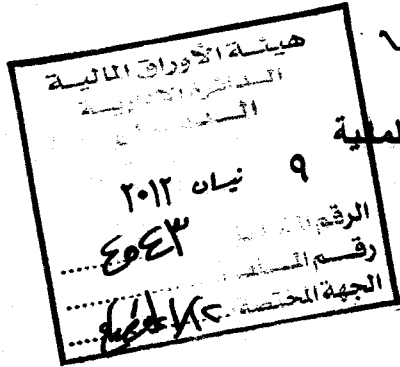 هيئة الأوراق المالية
الدائرة الادارية
الديوان
المالية
٩ نيسان ٢٠١٢
الرقم المتسلسل ٤٥٤٣
رقم الملف
الجهة المختصة